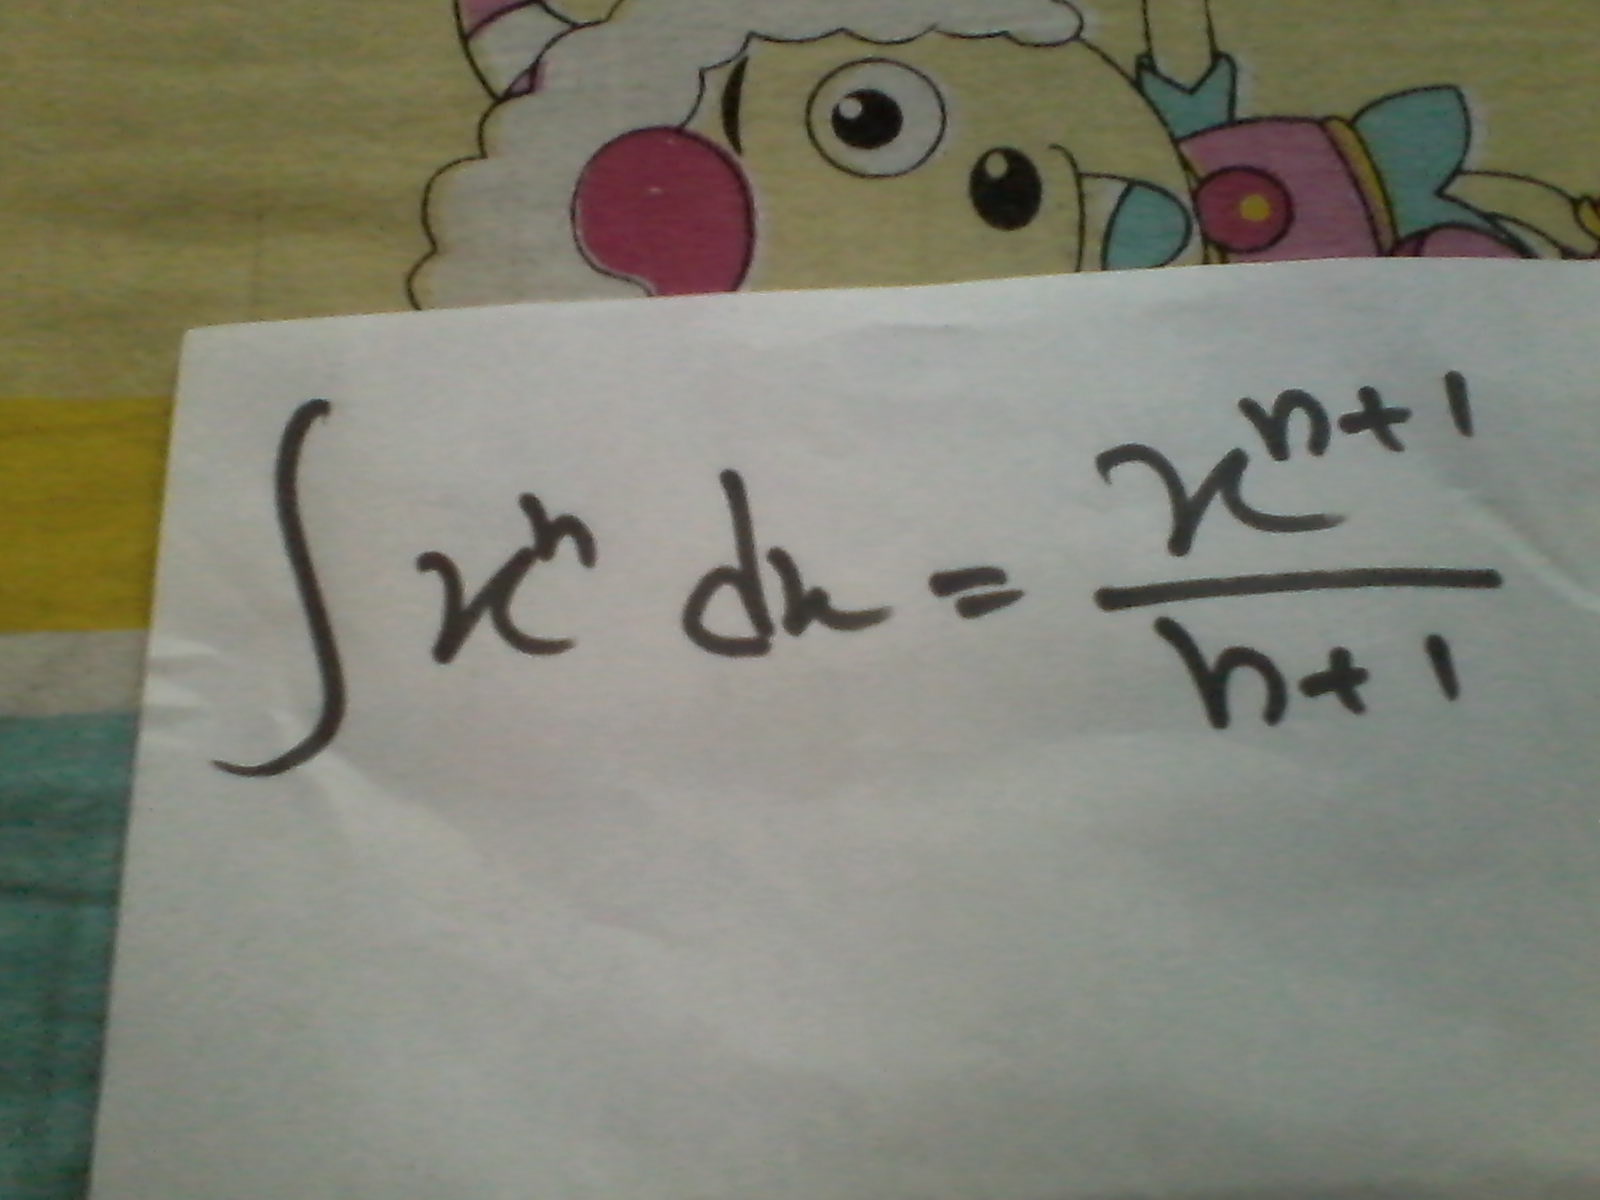 ∫ xⁿ dx = xⁿ⁺¹ / n+1